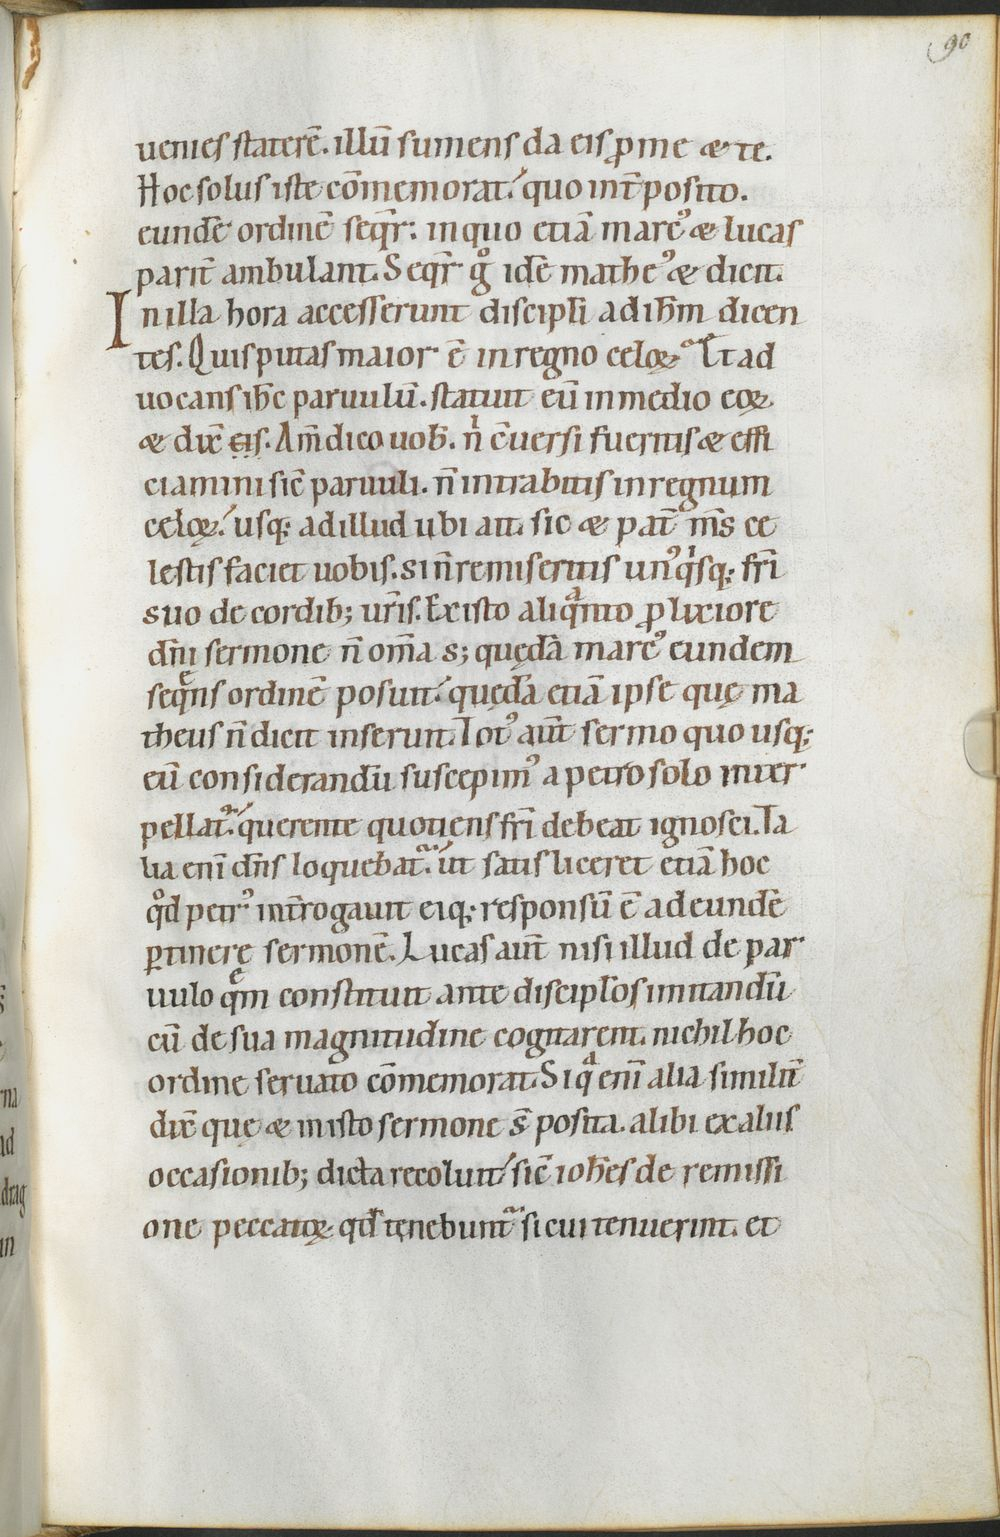 90
uenies staterē. illū sumens da eis ꝓ me & te.
Hoc solus iste cōmemorat. quo int̄posito.
eundē ordinē seq̄r. in quo etiā marcꝰ & lucas
parit̄ ambulant. Seqr̄ gͦ idē matheꝰ & dicit.
In illa hora accesserunt discipłi ad ih̄m dicen
tes. Quis putas maior ē in regno celoꝝ. Et ad
uocans ih̄c paruulū. statuit eū in medio eoꝝ
& dix̄ eis. Am̄ dico uob̄. nͥ c̄uersi fueritis & effi
ciamini sic̄ paruuli. n̄ intrabitis in regnum
celoꝝ. usq; ad illud ubi ait. sic & pat̄ m̄s ce
lestis faciet uobis. si n̄ remiseritis unꝰqͥsq; fr̄i
suo de cordib; ur̄is. Ex isto aliqͣnto ꝓlixiore
dn̄i sermone n̄ om̄a s; quędā marcꝰ eundem
seq̄ns ordinē posuit. quędā etiā ipse quę ma
theus n̄ dicit inseruit. Totꝰ aut̄ sermo quo usq;
eū considerandū suscepimꝰ a petro solo inter
pellat᷑. querente quotiens fr̄i debeat ignosci. Ta
lia eni dn̄s loquebat᷑. ut satis liceret etiā hoc
qͦd petrꝰ int̄rogauit eiq; responsū ē ad eundē
ꝑtinerę sermonē. Lucas aut̄ nisi illud de par
uulo q̄m constituit ante discipłos imitandū
cū de sua magnitudine cogitarent. nichil hoc
ordine seruato cōmemorat. Si qͣ eni alia similit̄
dix̄ quę & in isto sermone s̄ posita. alibi ex aliis
occasionib; dicta recoluit. sic̄ ioh̄es de remissi
one peccatoꝝ. qd̄ tenebunt᷑ si cui tenuerint. et